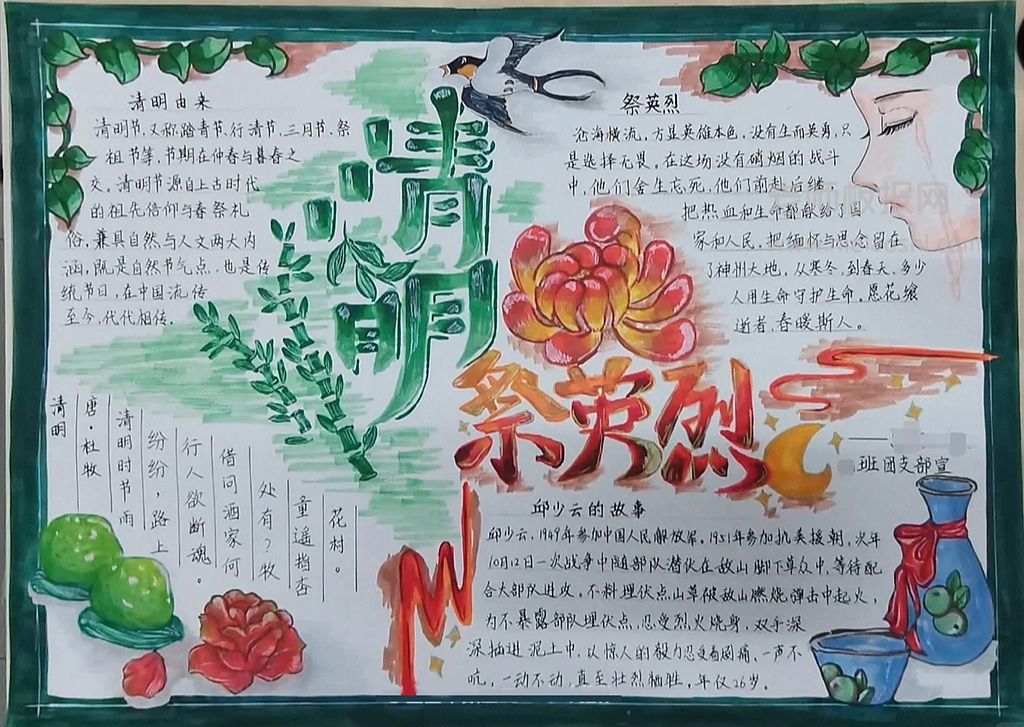 清明由来
清明节,又称踏青节、行清节、三月节、祭
祖节等,节期在仲春与暮春之
交。清明节源自上古时代
的祖先信仰与春祭礼
俗,兼具自然与人文两大内
涵,既是自然节气点,也是传
统节日,在中国流传
至今,代代相传。
清明
祭英烈
祭英烈
沧海横流,方显英雄本色,没有生而英勇,只
是选择无畏。在这场没有硝烟的战斗
中,他们舍生忘死,他们前赴后继,
把热血和生命都献给了国
家和人民。把缅怀与思念留在
了神州大地,从寒冬,到春天,多少
人用生命守护生命。愿花缀
逝者,春暖斯人。
班团支部宣
清明
唐·杜牧
清明时节雨
纷纷,路上
行人欲断魂。
借问酒家何
处有?牧
童遥挡杏
花村。
邱少云的故事
邱少云,1949年参加中国人民解放军,1951年参加抗美援朝,次年
10月12日一次战争中随部队潜伏在敌山脚下草众中,等待配
合大部队进攻。不料埋伏点山草被敌山燃烧弹击中起火,
为不暴露部队埋伏点,忍受烈火烧身,双手深
深插进泥土中,以惊人的毅力忍受着剧痛、一声不
吭,一动不动,直至壮烈牺牲,年仅26岁。